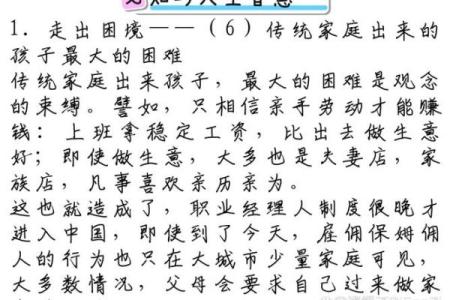 1. 走出困境——(6)传统家庭出来的
孩子最大的困难
传统家庭出来孩子，最大的困难是观念
的束缚。譬如，只相信亲手劳动才能赚
钱：上班拿稳定工资，比出去做生意
好；即使做生意，大多也是夫妻店，家
族店，凡事喜欢亲历亲为。
这也就造成了，职业经理人制度很晚才
进入中国，即使到了今天，雇佣保姆佣
人的行为也只在大城市少量家庭可见，
大多数情况，父母会要求自己过来做家